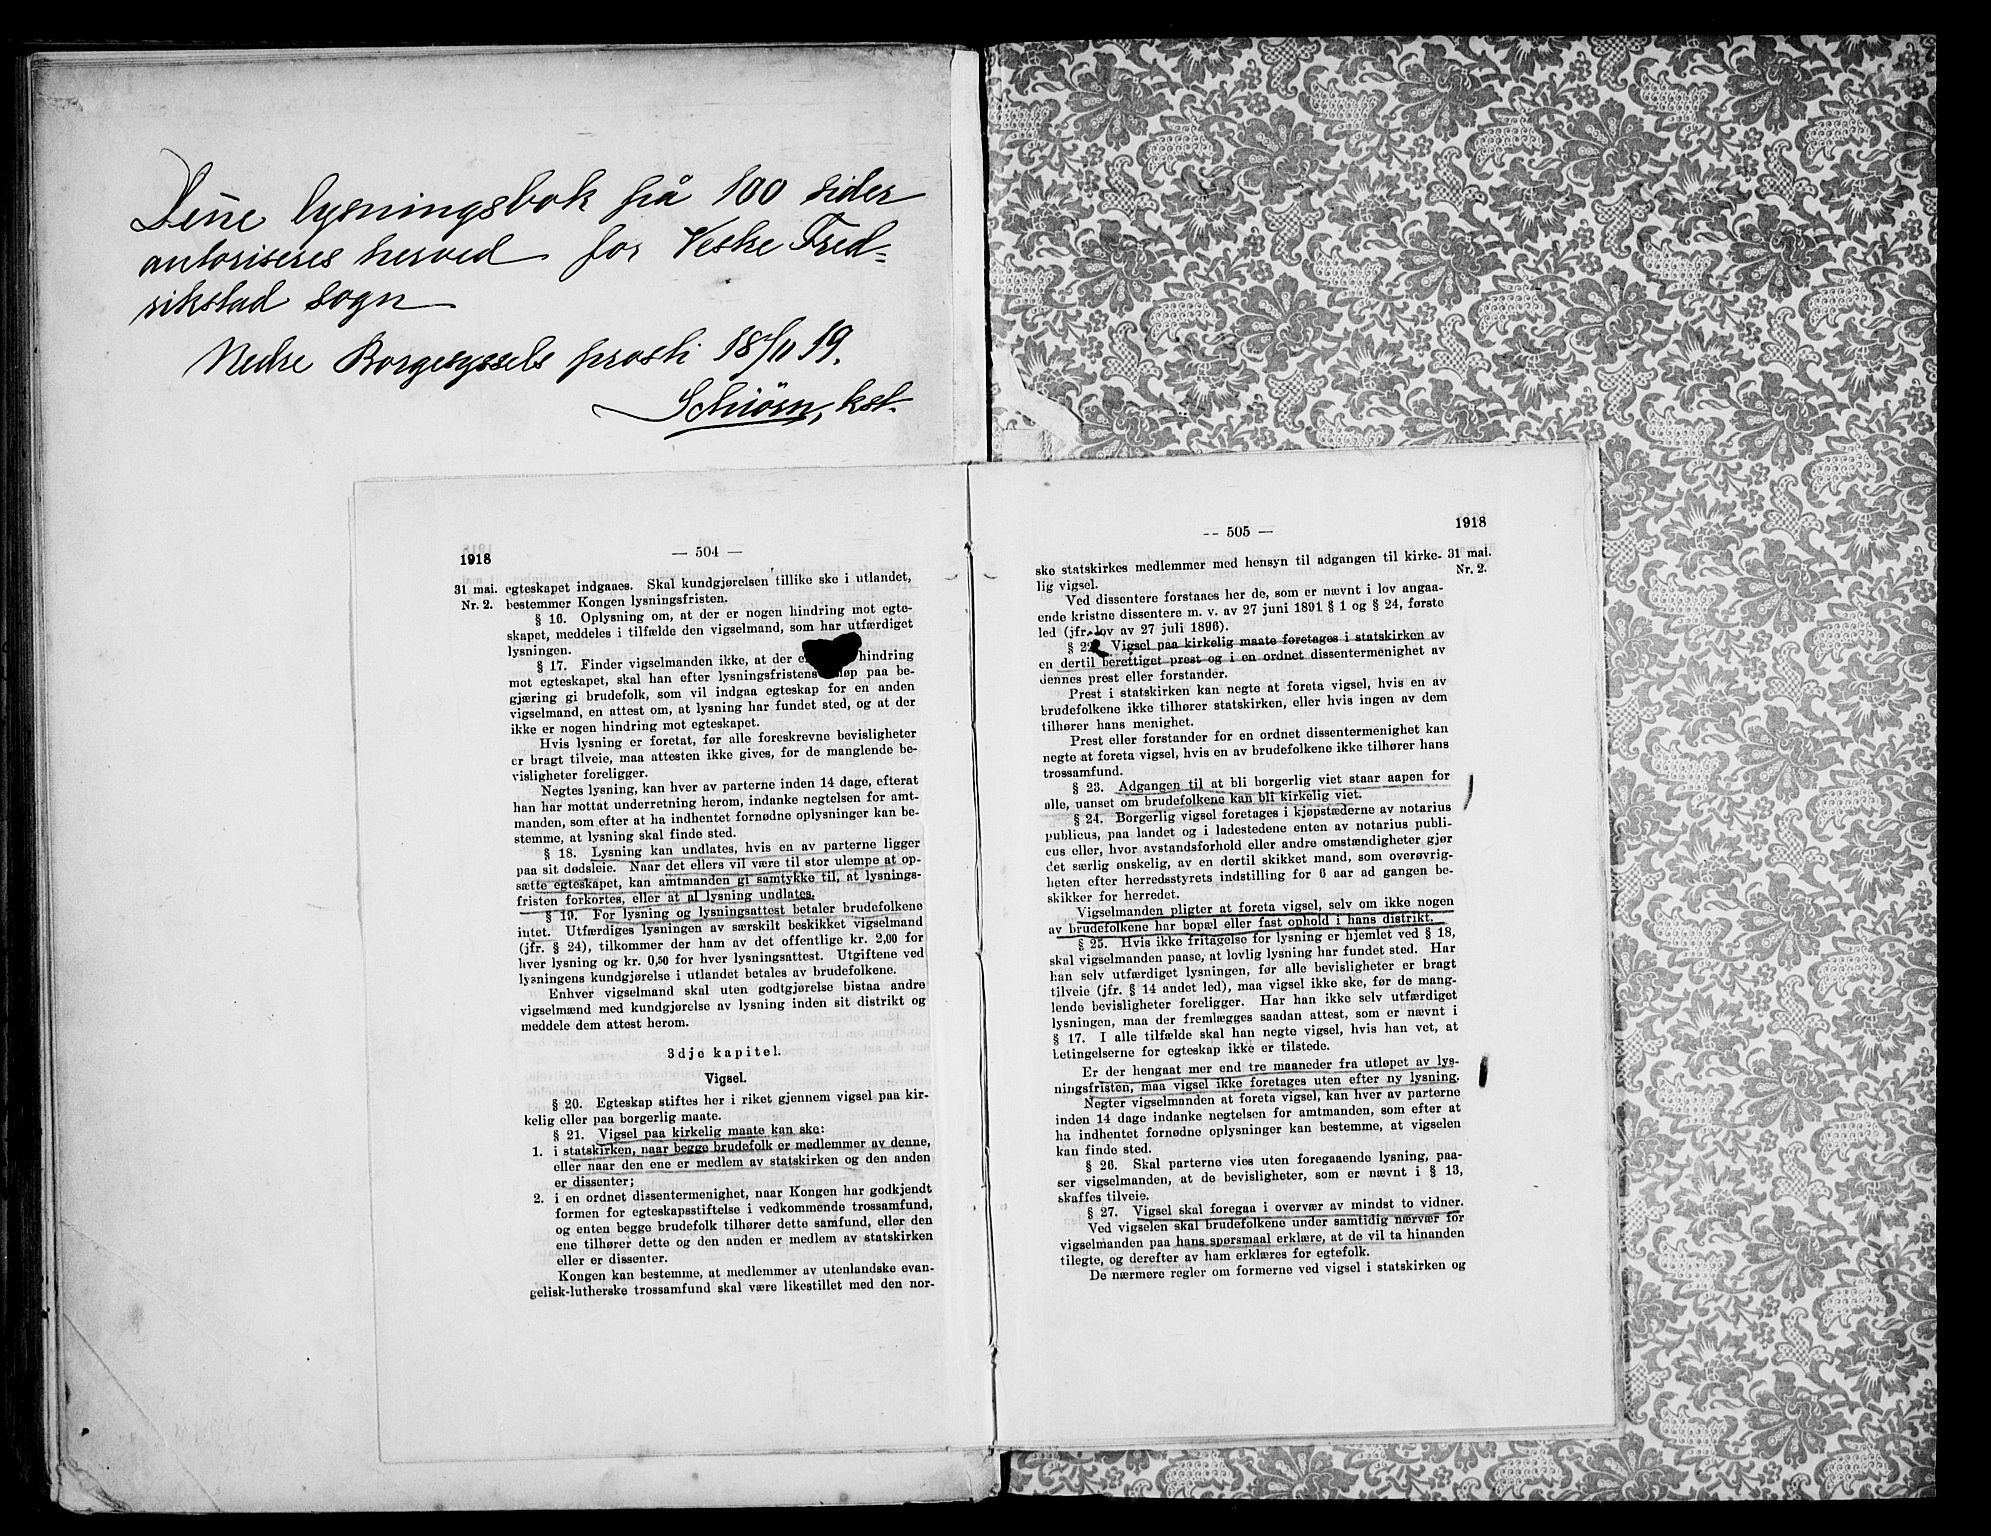 Denne lysningsbok på 100 sider
autoriseres herved for Vestre Fred=
rikstad sogn
Nedre Borgesyssels prosti 18/11 19.
Schiørn, kst.
1918
— 504 —
31 mai. egteskapet indgaaes. Skal kundgjørelsen tillike ske i utlandet,
Nr. 2. bestemmer Kongen lysningsfristen.
§ 16. Oplysning om, at der er nogen hindring mot egte-
skapet, meddeles i tilfælde den vigselmand, som har utfærdiget
lysningen.
§ 17. Finder vigselmanden ikke, at der hindring
mot egteskapet, skal han efter lysningsfristens paa be-
gjæring gi brudefolk, som vil indgaa egteskap for en anden
vigselmand, en attest om, at lysning har fundet sted, og at der
ikke er nogen hindring mot egteskapet.
Hvis lysning er foretat, før alle foreskrevne bevisligheter
er bragt tilveie, maa attesten ikke gives, før de manglende be-
visligheter foreligger.
Negtes lysning, kan hver av parterne inden 14 dage, efterat
han har mottat underretning herom, indanke negtelsen for amt-
manden, som efter at ha indhentet fornødne oplysninger kan be-
stemme, at lysning skal finde sted.
§ 18. Lysning kan undlates, hvis en av parterne ligger
paa sit dødsleie. Naar det ellers vil være til stor ulempe at op-
sætte egteskapet, kan amtmanden gi samtykke til, at lysnings-
fristen forkortes, eller at al lysning undlates.
§ 19. For lysning og lysningsattest betaler brudefolkene
intet. Utfærdiges lysningen av særskilt beskikket vigselmand
(jfr. § 24), tilkommer der ham av det offentlige kr. 2,00 for
hver lysning og kr. 0,50 for hver lysningsattest. Utgiftene ved
lysningens kundgjørelse i utlandet betales av brudefolkene.
Enhver vigselmand skal uten godtgjørelse bistaa andre
vigselmænd med kundgjørelse av lysning inden sit distrikt og
meddele dem attest herom.
3dje kapitel.
Vigsel.
§ 20. Egteskap stiftes her i riket gjennem vigsel paa kir-
kelig eller paa borgerlig maate.
§ 21. Vigsel paa kirkelig maate kan ske:
1. i statskirken, naar begge brudefolk er medlemmer av denne,
eller naar den ene er medlem av statskirken og den anden
er dissenter;
2. i en ordnet dissentermenighet, naar Kongen har godkjendt
formen for egteskapsstiftelse i vedkommende trossamfund,
og enten begge brudefolk tilhører dette samfund, eller den
ene tilhører dette og den anden er medlem av statskirken
eller er dissenter.
Kongen kan bestemme, at medlemmer av utenlandske evan-
gelisk-lutherske trossamfund skal være likestillet med den nor-
-- 505 —
1918
ske statskirkes medlemmer med hensyn til adgangen til kirke- 31 mai.
lig vigsel. Nr. 2.
Ved dissentere forstaaes her de, som er nævnt i lov angaa-
ende kristne dissentere m. v. av 27 juni 1891 § 1 og § 24, første
led (jfr. lov av 27 juli 1896).
§ 22. Vigsel paa kirkelig maate foretages i statskirken av
en dertil berettiget prest og i en ordnet dissentermenighet av
dennes prest eller forstander.
Prest i statskirken kan negte at foreta vigsel, hvis en av
brudefolkene ikke tilhører statskirken, eller hvis ingen av dem
tilhører hans menighet.
Prest eller forstander for en ordnet dissentermenighet kan
negte at foreta vigsel, hvis en av brudefolkene ikke tilhører hans
trossamfund.
§ 23. Adgangen til at bli borgerlig viet staar aapen for
alle, uanset om brudefolkene kan bli kirkelig viet.
§ 24. Borgerlig vigsel foretages i kjøpstæderne av notarius
publicus, paa landet og i ladestedene enten av notarius publi-
cus eller, hvor avstandsforhold eller andre omstændigheter gjør
det særlig ønskelig, av en dertil skikket mand, som overøvrig-
heten efter herredsstyrets indstilling for 6 aar ad gangen be-
skikker for herredet.
Vigselmanden pligter at foreta vigsel, selv om ikke nogen
av brudefolkene har bopæl eller fast ophold i hans distrikt.
§ 25. Hvis ikke fritagelse for lysning er hjemlet ved § 18,
skal vigselmanden paase, at lovlig lysning har fundet sted. Har
han selv utfærdiget lysningen, før alle bevisligheter er bragt
tilveie (jfr. § 14 andet led), maa vigsel ikke ske, før de mang-
lende bevisligheter foreligger. Har han ikke selv utfærdiget
lysningen, maa der fremlægges saadan attest, som er nævnt i
§ 17. I alle tilfælde skal han negte vigsel, hvis han vet, at
betingelserne for egteskap ikke er tilstede.
Er der hengaat mer end tre maaneder fra utløpet av lys-
ningsfristen, maa vigsel ikke foretages uten efter ny lysning.
Negter vigselmanden at foreta vigsel, kan hver av parterne
inden 14 dage indanke negtelsen for amtmanden, som efter at
ha indhentet fornødne oplysninger kan bestemme, at vigselen
kan finde sted.
§ 26. Skal parterne vies uten foregaaende lysning, paa-
ser vigselmanden, at de bevisligheter, som er nævnt i § 13,
skaffes tilveie.
§ 27. Vigsel skal foregaa i overvær av mindst to vidner.
Ved vigselen skal brudefolkene under samtidig nærvær for
vigselmanden paa hans spørsmaal erklære, at de vil ta hinanden
tilegte, og derefter av ham erklæres for egtefolk.
De nærmere regler om formerne ved vigsel i statskirken og